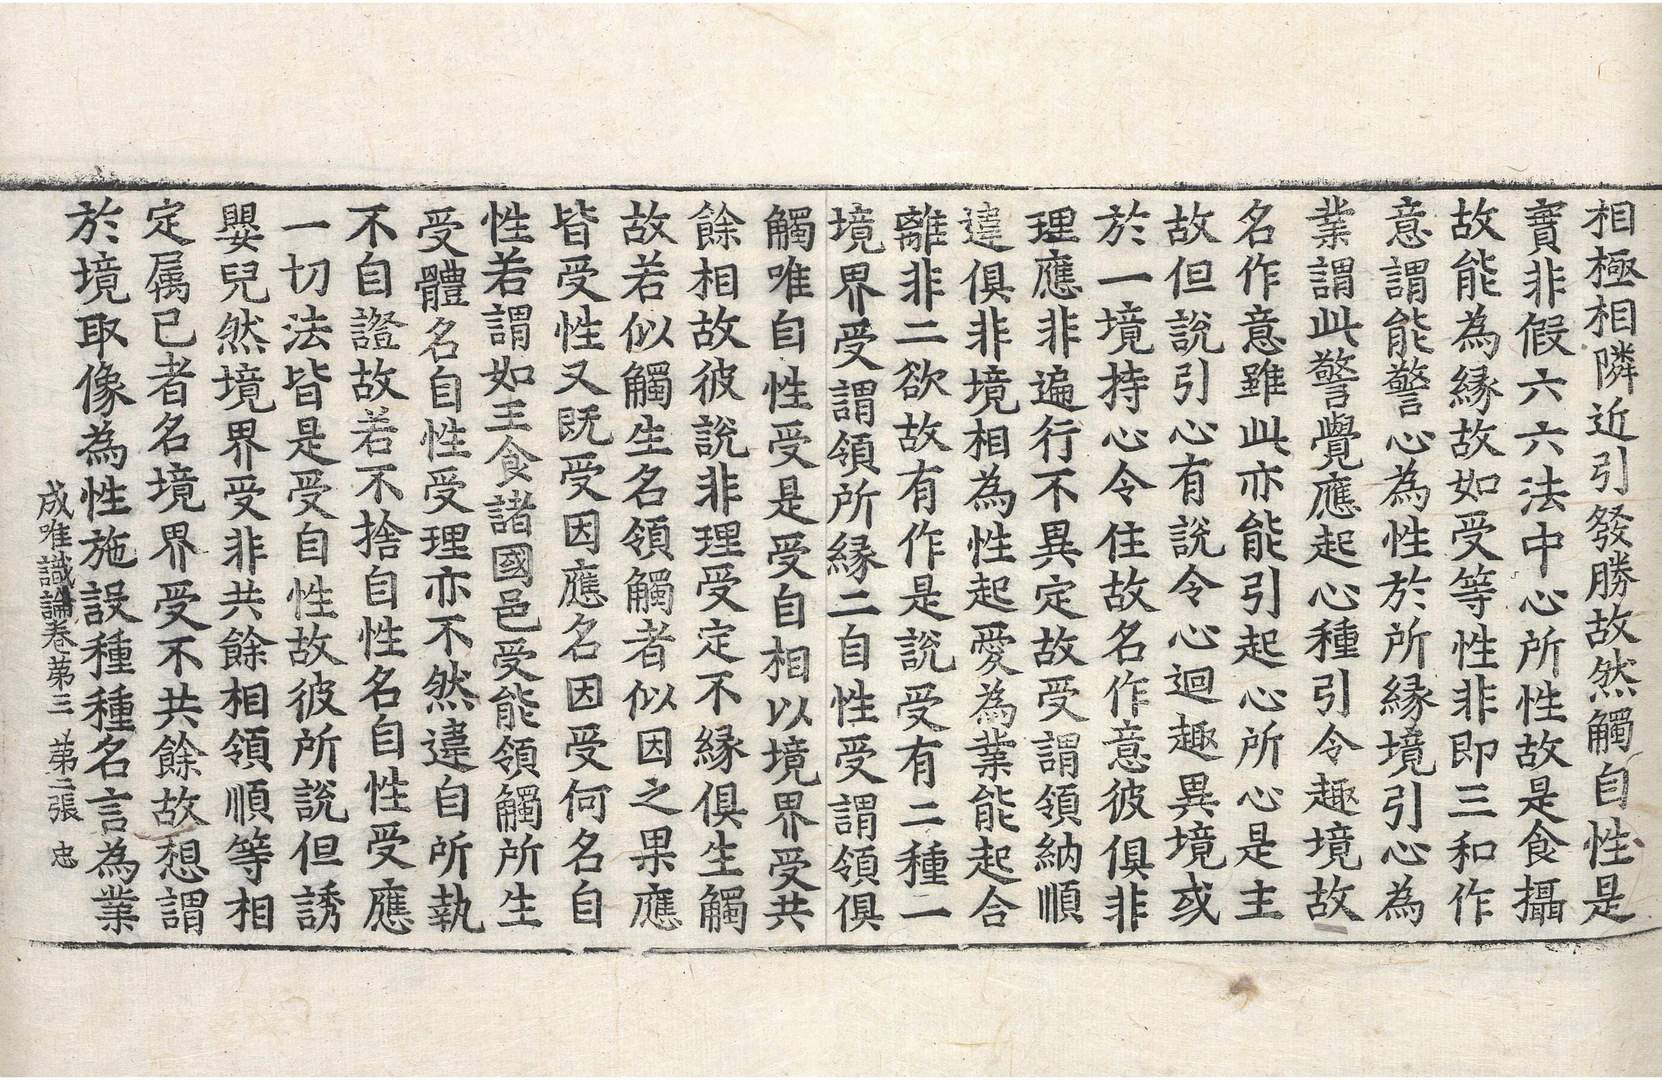 相極相隣近引發勝故然觸自性是
實非假六六法中心所性故是食攝
故能為縁故如受等性非即三和作
意謂能警心為性於所縁境引心為
業謂此警覺應起心種引令趣境故
名作意雖此亦能引起心所心是主
故但說引心有說令心迴趣異境或
於一境持心令住故名作意彼俱非
理應非遍行不異定故受謂領納順
違俱非境相為性起愛為業能起合
離非二欲故有作是說受有二種一
境界受謂領所縁二自性受謂領俱
觸唯自性受是受自相以境界受共
餘相故彼說非理受定不縁俱生觸
故若似觸生名領觸者似因之果應
皆受性又既受因應名因受何名自
性若謂如王食諸國邑受能領觸所生
受體名自性受理亦不然違自所執
不自證故若不捨自性名自性受應
一切法皆是受自性故彼所說但誘
嬰兒然境界受非共餘相領順等相
定属已者名境界受不共餘故想謂
於境取像為性施設種種名言為業
成唯識論卷苐三　苐二張　忠